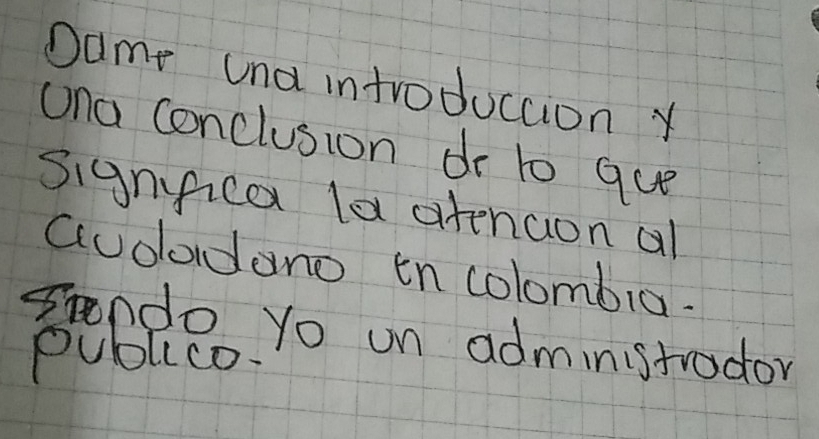 Dame una introduccion y
una conclusion de lo que
significa la atencion al
ciudadano en colombia.
siendo yo un administrador
publico.